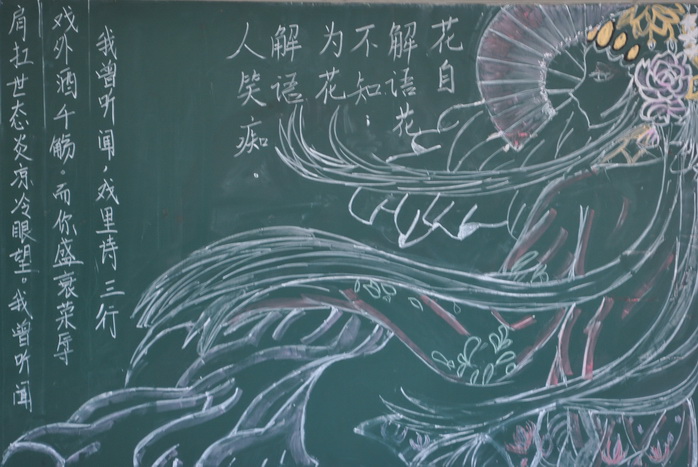 花自
解语花
不知；
为花
解语
人笑痴。
我曾听闻，戏里诗三行
戏外酒千觞。而你盛衰荣辱
肩扛世态炎凉冷眼望。我曾听闻